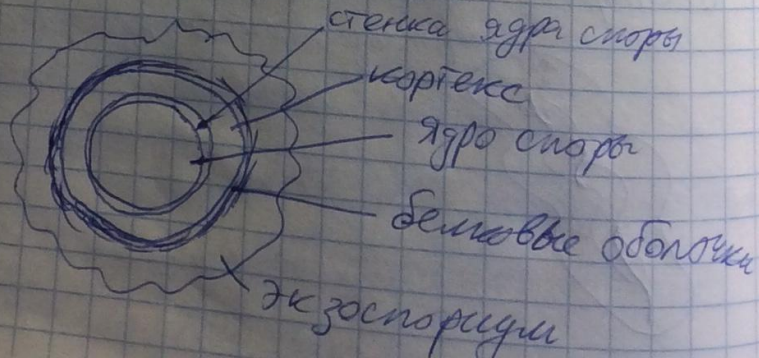 стенка ядра споры
кортекс
ядро споры
белковые оболочки
экзоспориум